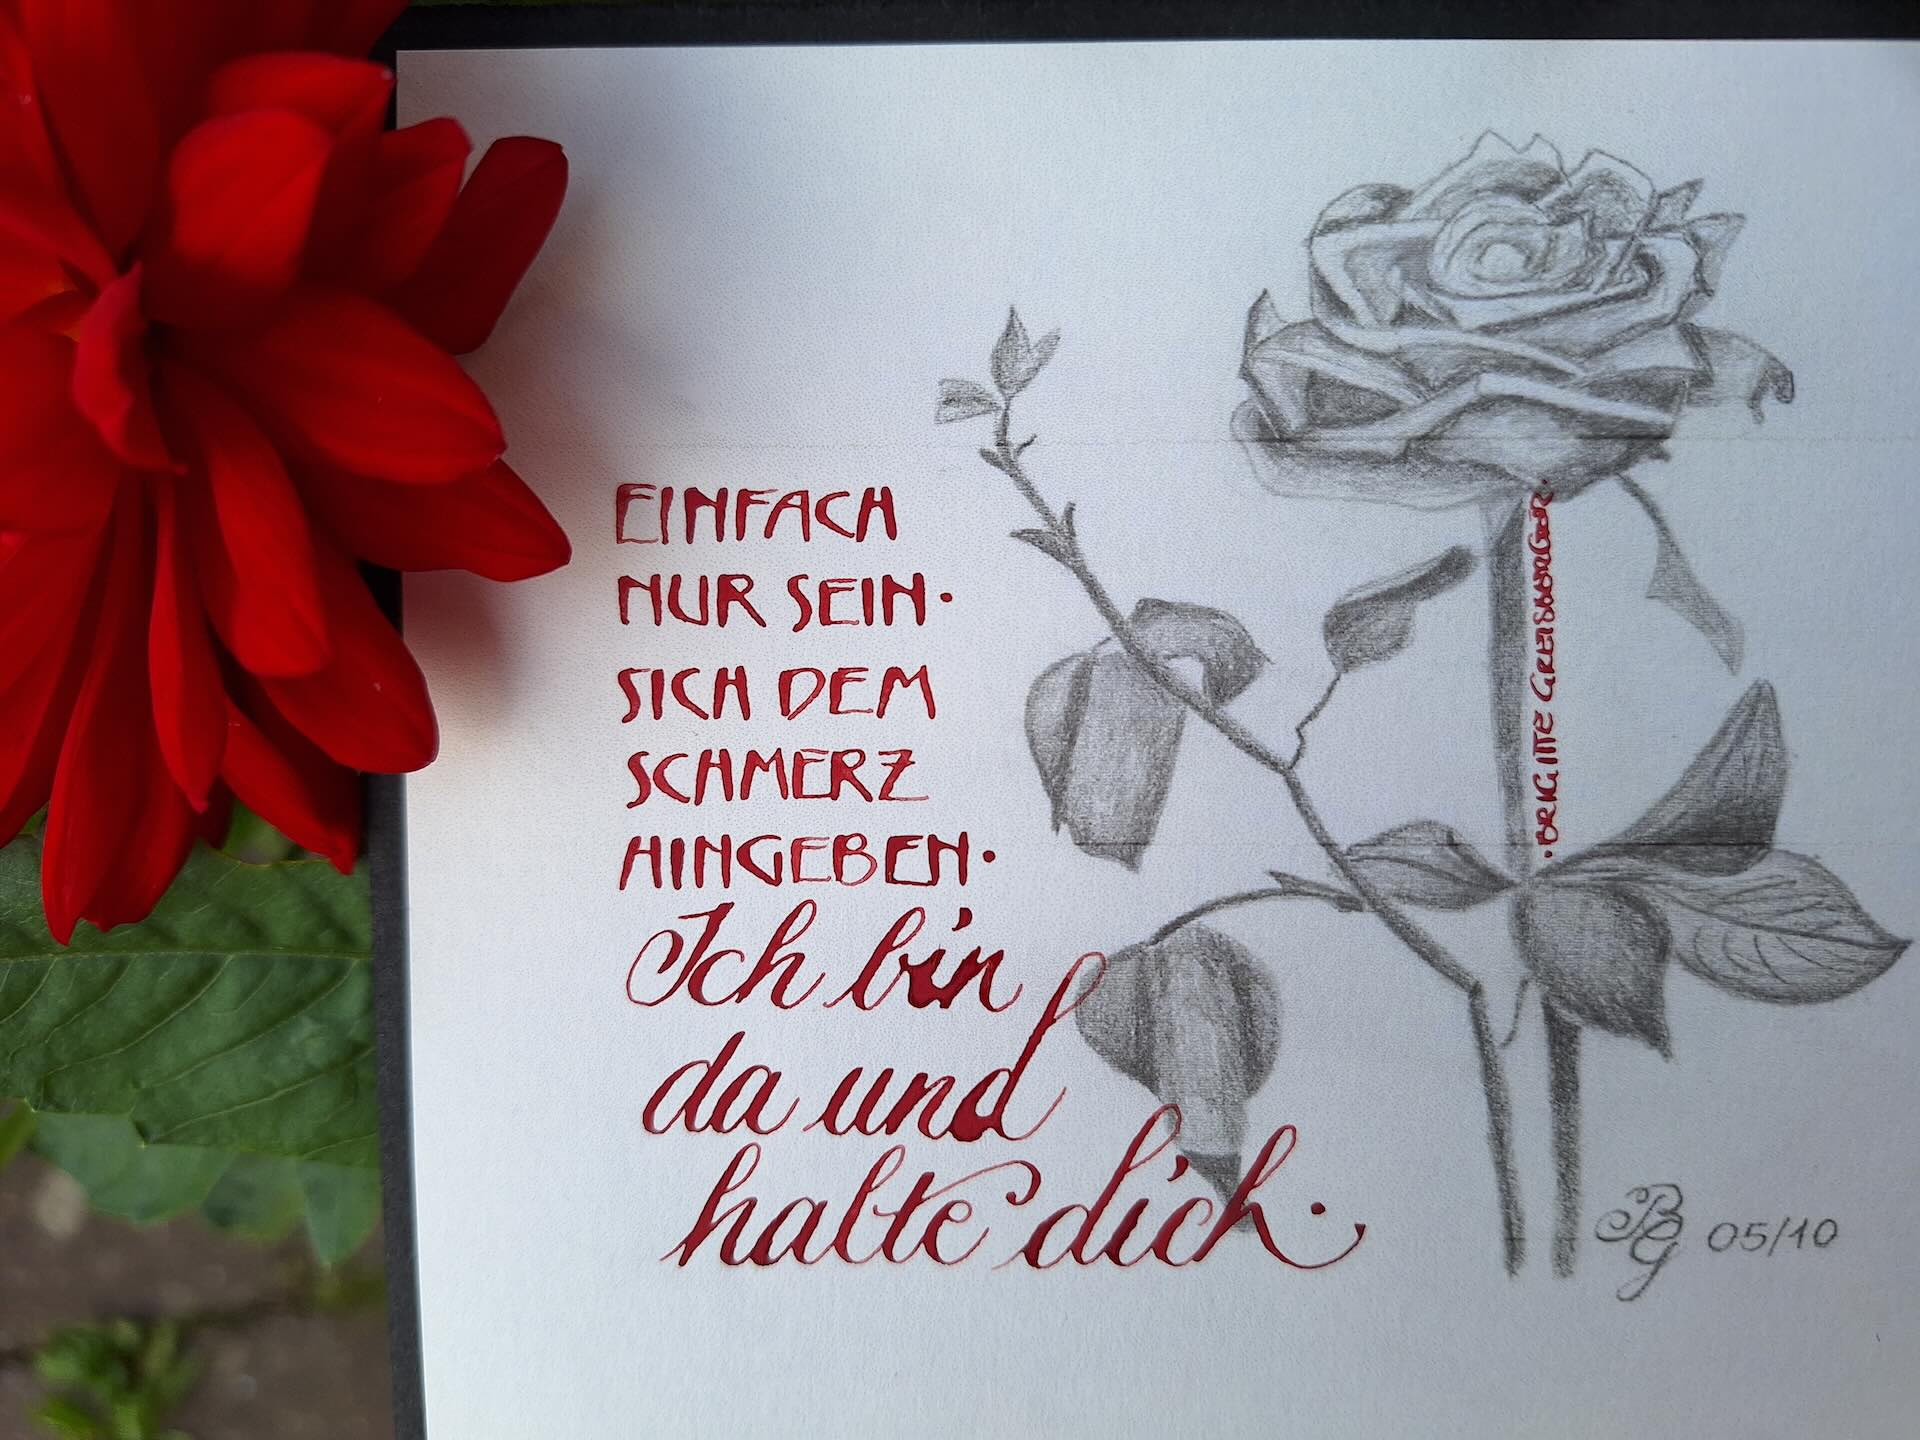 EINFACH
NUR SEIN.
SICH DEM
SCHMERZ
HINGEBEN.
Ich bin
da und
halte dich.
·BRIGITTE GREISBERGER·
BG 05/10